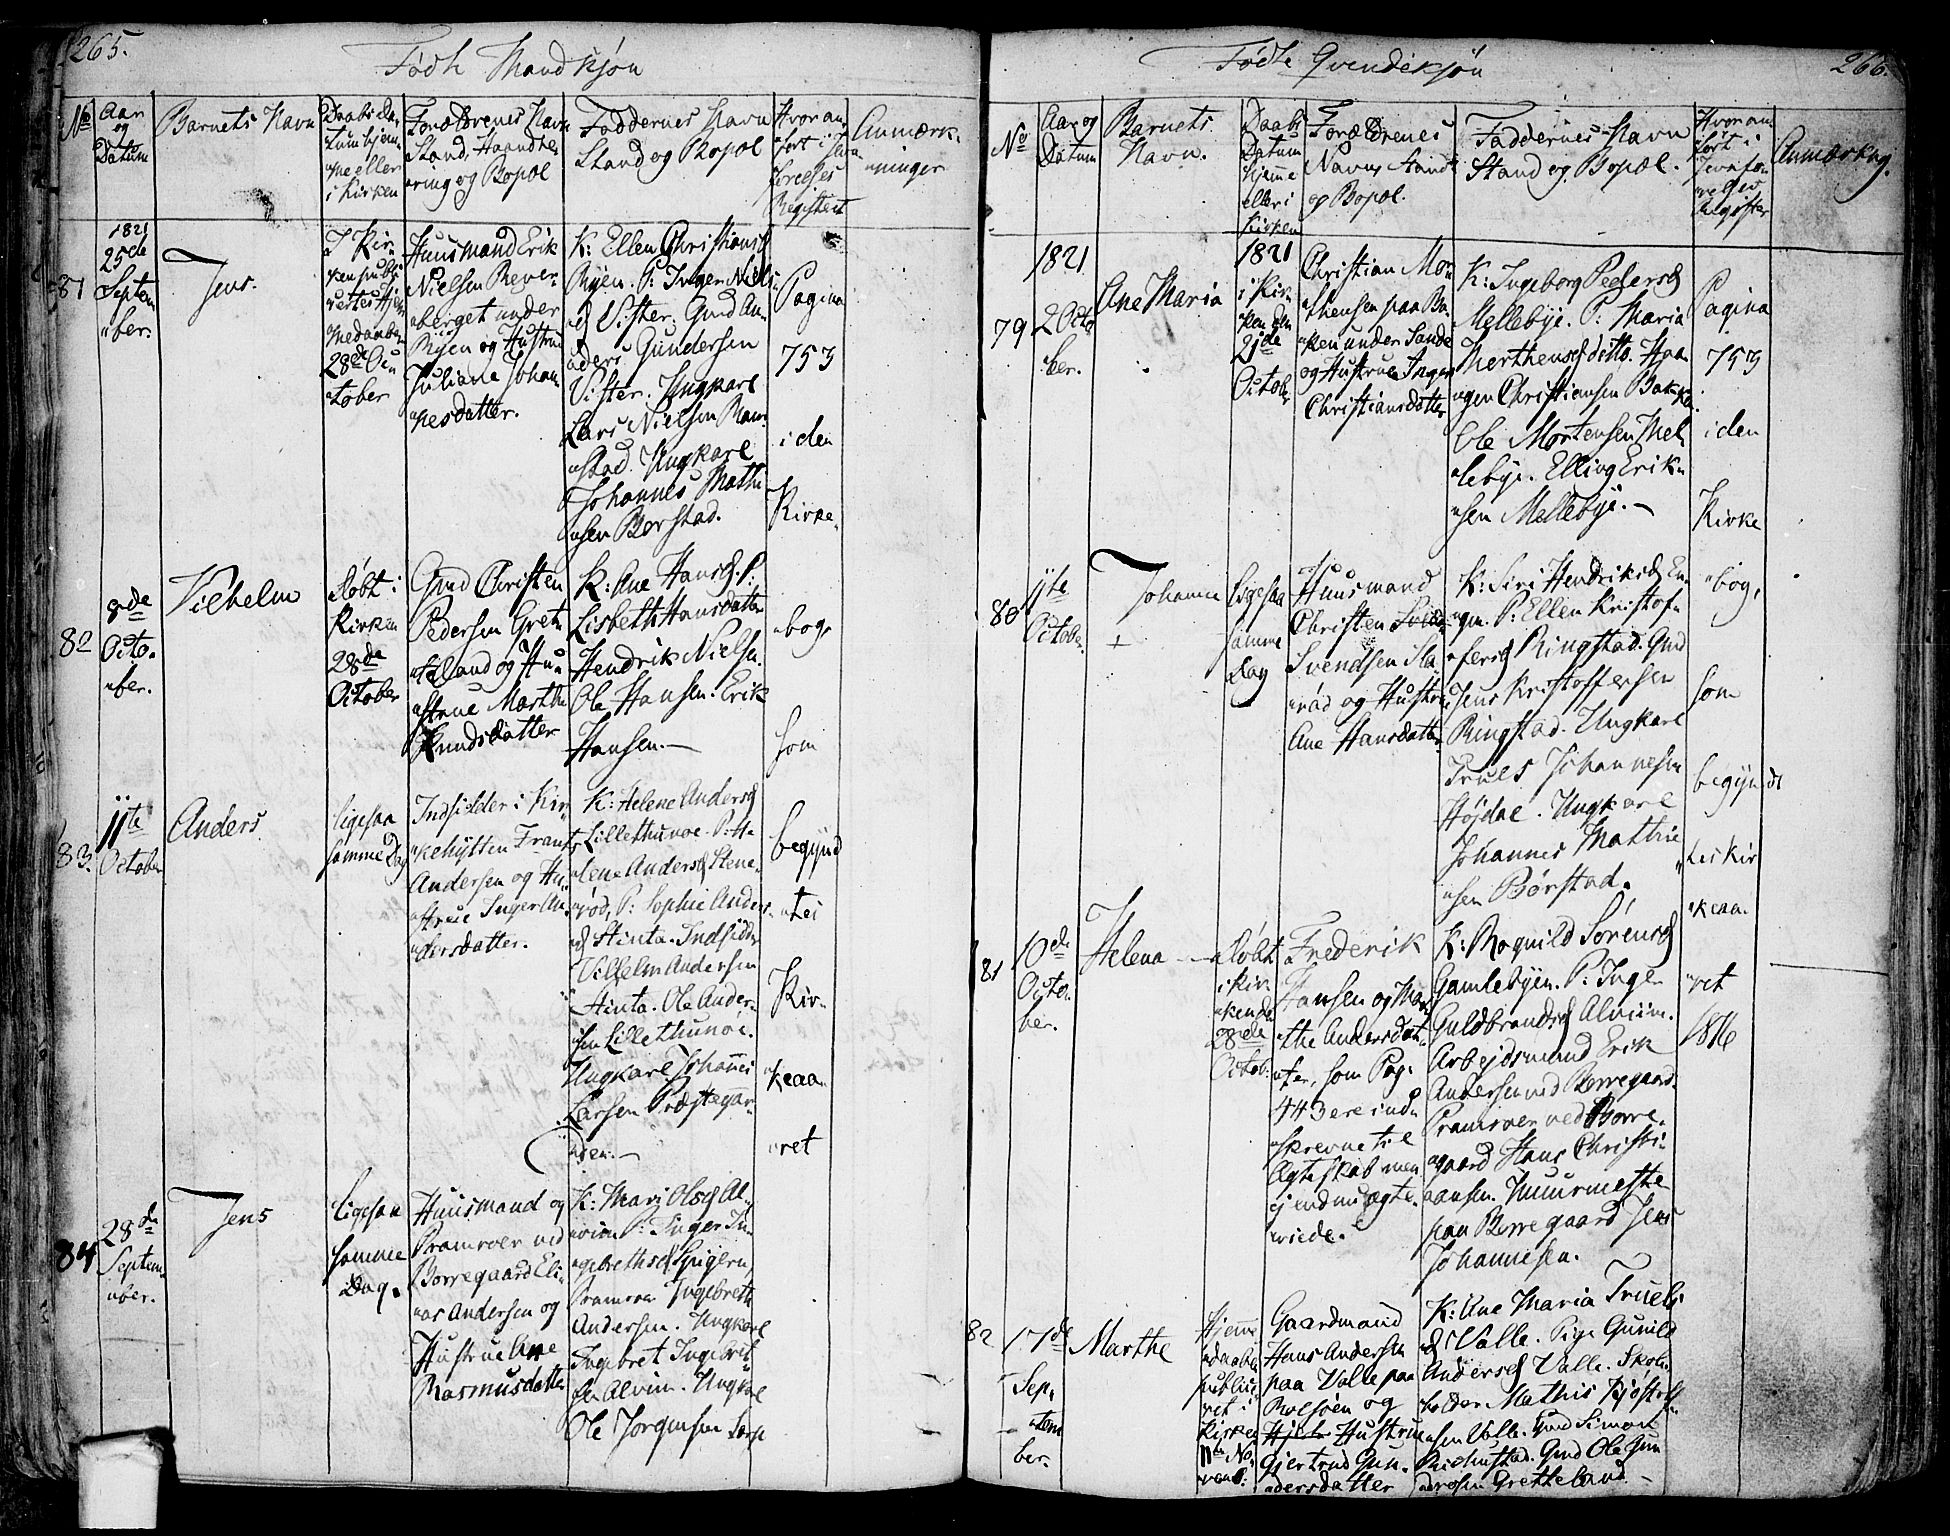 265.
Fødte Mandkjøn
No
Aar
og
Datum
Barnets Navn
Daabs Da„
tum hjem„
me eller
i Kirken
Forældrenes Navn
Stand, Haandte„
ring og Bopæl
Faddernes Navn
Stand og Bopæl
Hvor an„
ført i
Registeret
Anmærk„
„ninger
81
1821
25de
Septem
„ber.
Jens.
I Kir„
ken publi
28de Oc„
„tober
Huusmand Erik
Nielsen Rever„
„berget under
Ryen og Hustru
Juliane Johan„
„nesdatter.
K: Ellen Christiansd
Ryen. P: Inger Niels„
d Vister. Gmd An„
„ders Gundersen
Vister. Ungkarl
Lars Nielsen Ram„
„stad. Ungkarl
Johannes Mathi
„sen Børstad.
Pagina
753
i den
Kirke„
„bog,
som
begynd
„tes
Kir„
„keaa„
„ret
82
8de
Octo„
„ber.
Vilhelm
døbt i
Kirken
28de
October
Gmd Christen
Pedersen Gret„
„land og Hu„
„strue Marthe
Knudsdatter
K: Ane Hansd. P:
Lisbeth Hansdatter
Hendrik Nielsen.
Ole Hansen. Erik
Hansen.—
83.
11te
October
Anders
ligesaa
samme Dag
Indsidder i Kir„
„kehytten Frants
Andersen og Hu„
„strue Inger An„
„dersdatter.
K: Helene Andersd
Lillethunøe. P: He„
„lene Andersd Stene„
„rød, P: Sophie Anders„
d Stinta. Indsidder
Vilhelm Andersen
Stinta. Ole Ander„
„sen Lillethunøe.
Ungkarl Johannes
Larsen Præstegaar„
„den.—
84
28de
Septem„
„ber.
Jens
ligesaa
samme
Dag.
Huusmand og
Pramroer ved
Borregaard Eli„
„as Andersen og
Hustrue Ane
Rasmusdatter
K: Mari Olsd Al„
„viim P: Inger In„
„gebrethsd Spigern,
Pramroer Ingebreth
Andersen. Ungkarl
Ingebret Ingebret„
„sen Alvim. Ungkarl
Ole Jørgensen Sarp
266.
Fødte Qvendekjøn
No
Aar og
Datum
Barnets
Navn.
Daabs
Datum
hjemme
eller i
Kirken
Forældrenes
Navn, Stand
og Bopæl.
Faddernes Navn
Stand og Bopæl.
Hvor an„
ført i
Register
Anmærkng.
79
1821
2 Octo
„ber.
Ane Maria
1821
i Kir„
„ken den
21de
October
Christian Mor„
„thensen paa Ba„
„ken under Sande
og Hustrue Inger
Christiansdatter
K: Ingeborg Pedersd
Mellebye. P: Maria
Morthensd ditto. Haa„
„gen Christiansen Bakke.
Ole Mortensen Mel„
„lebye. Elling Erik„
„sen Mellebye.—
Pagina
753
i den
Kirke
„bog,
som
begyndt
„tes Kir„
„keaa„
„ret
1816
80
11te
October
Johanne
+
ligesaa
samme
Dag
Huusmand
Christen
Svendsen Sla„
„rød og Hustrue
Ane Hansdatter
K: Siri Hendriksd En„
„gen. P: Ellen Kristof„
„fersd Ringstad. Gmd
Jens Kristoffersen
Ringstad. Ungkarl
Truels Johannesen
Højdal. Ungkarl
Johannes Mathie
„sen Børstad.
81
10de
Octo„
ber.
Helena
døbt
i Kir„
„ken den
28de
Octob:
Frederik
Hansen og Mar„
„the Andersdat„
„ter, som Pag:
443 ere ind„
„skrevne til
Ægteskab men
ej endnu ægte„
„viede.
K: Rognild Sørensd
Gamlebyen. P: Inge„
Guldbrandsd Alviim.
Arbejdsmand Erik
Andersen ved Borregaard.
Pramroer ved Borre„
„gaard Hans Christi„
„ansen. Muurmester
paa Borregaard Jens
Johannesen.
82
17de
Sep„
„tem
ber.
Marthe
Hjemme
„daabe
publice„
„ret i
Kirken
11te No„
„vemb:
Gaardmand
Hans Andersen
paa Valle paa
Rolsøen og
Hustrue
Gjertrud Gun„
„dersdatter
K: Ane Maria Truels„
d Valle. Pige Gunild
Andersd Valle. Skole„
„holder Mathis Kjøstel„
„sen Valle. Gmd Simon
Gmd Ole Gun
„dersen Gretteland.—